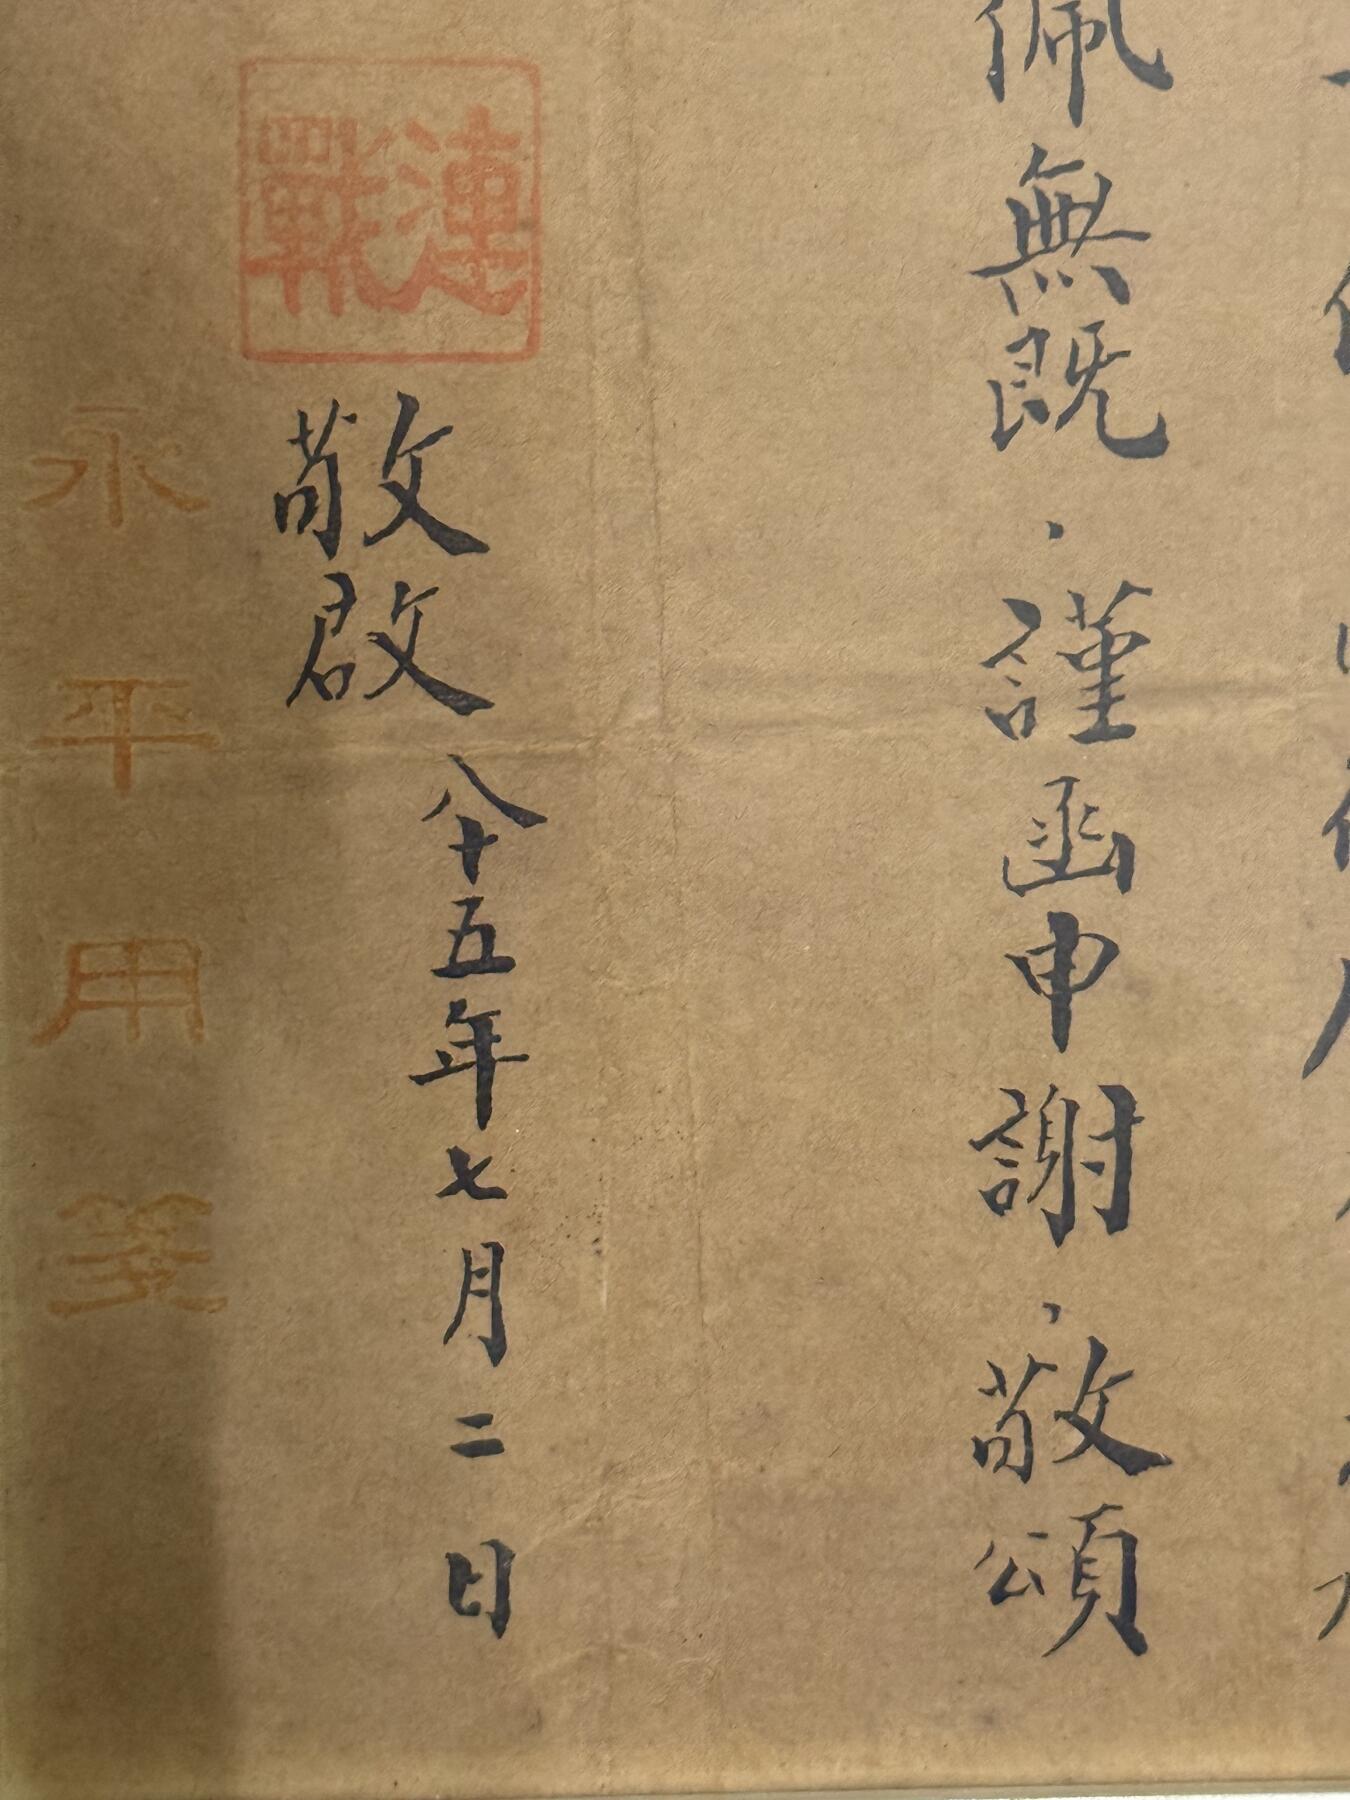 佩無既，謹函申謝，敬頌
連戰
敬啟
八十五年七月二日
永平用箋